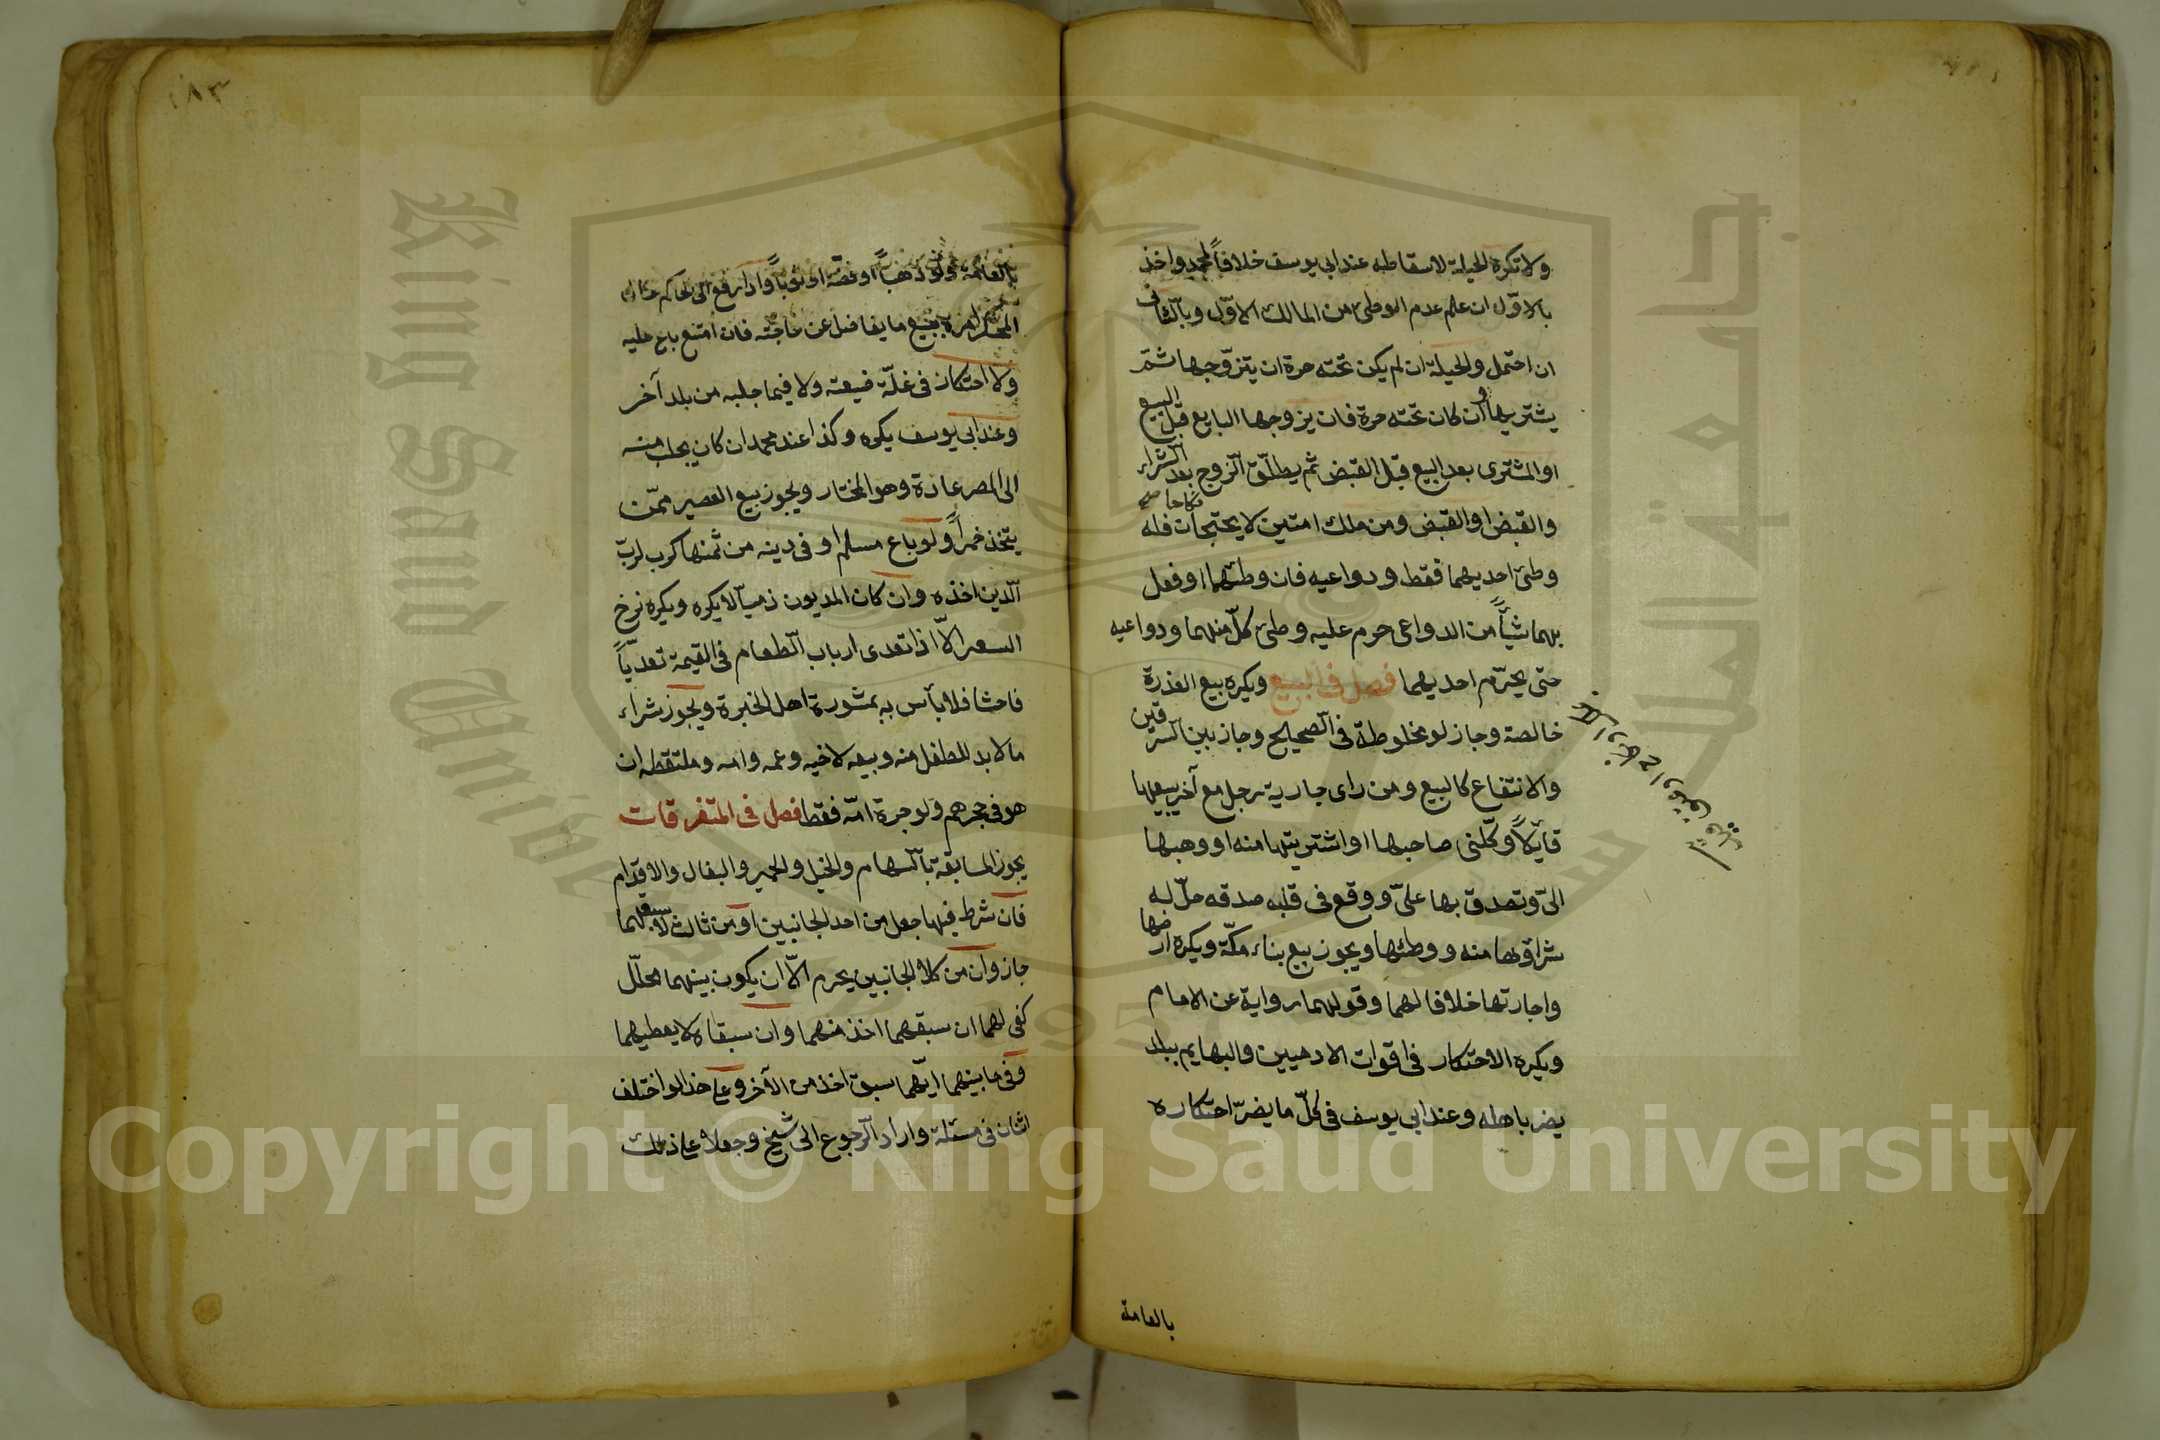 ولا تكره الحيلة لاسقاطه عند ابى يوسف خلافاً لمحمد واخذ
بالاوّل ان علم عدم الوطئ من المالك الاوّل وبالثانى
ان احتمل والحيلة ان لم يكن تحته حرة ان يتزوّجها ثم
يشتريها وان كان تحته حرة فان يزوجها البايع قبل البيع
او المشترى بعد البيع قبل القبض ثم يطلّق الزوج بعد الشراء
والقبض او القبض ومن ملك امتين لا يجتمعان نكاحا فله
وطئ احديهما فقط ودواعيه فان وطئهما او فعل
بهما شيأً من الدواعى حرم عليه وطئ كلّ منهما ودواعيه
حتى يحرّم احديهما فصل فى البيع ويكره بيع العذرة
خالصة وجاز لو مخلوطة فى الصحيح وجاز بيع السرقين
والانتفاع كالبيع ومن راى جارية رجل مع آخر يبيعها
قايلاً وكّلنى صاحبها او اشتريتها منه او وهبها
الىّ وتصدق بها علىّ ووقع فى قلبه صدقه حلّ له
شراؤها منه ووطئها ويجوز بيع بناء مكّة ويكره ارضها
واجارتها خلافا لهما وقولهما رواية عن الامام
ويكره الاحتكار فى اقوات الادميين والبهايم ببلد
يضر باهله وعند ابى يوسف فى كلّ ما يضرّ احتكاره
بالعامة
١٨٣
بالعامة ولو ذهباً او فضّة او ثوباً واذا رفع الى الحاكم حال
المحتكر امره ببيع ما يفاضل عن حاجته فان امتنع باع عليه
ولا احتكار فى غلّة ضيعته ولا فيما جلبه من بلد آخر
وعند ابى يوسف يكره وكذا عند محمد ان كان يجلب منه
الى المصر عادة وهو المختار ويجوز بيع العصير ممّن
يتخذ خمراً ولو باع مسلم اوفى دينه من ثمنها كره لربّ
الدين اخذه وان كان المديون ذمياً لا يكره ويكره نرخ
السعر الاّ اذا تعدى ارباب الطعام فى القيمة تعدّياً
فاحشا فلا بأس به بمشورة اهل الخبرة ويجوز شراء
ما لا بد للطفل منه وبيعه لاخيه وعمه وامه وملتقطه ان
هو فى حجرهم ولوجرة امّه فقط فصل فى المتفرقات
يجوز المسابقة بالسهام والخيل والحمير والبغال والاقدام
فان شرط فيها جعل من احد الجانبين او من ثالث لاسبقهما
جاز وان من كلا الجانبين يحرم الاّ ان يكون بينهما محلّل
كفى لهما ان سبقهما اخذ منهما وان سبقاه لا يعطيهما
وفى ما بينهما ايّهما سبق اخذ من الآخر وعلى هذا لو اختلف
اثنان فى مسئلة واراد الرجوع الى شيخ وجعلا على ذلك
King Saud University
جامعة الملك سعود
1957
Copyright © King Saud University